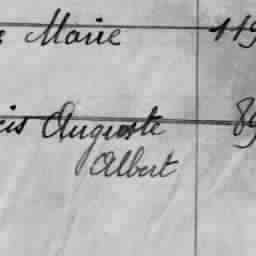 Marie 119
cis Auguste 89
Albert